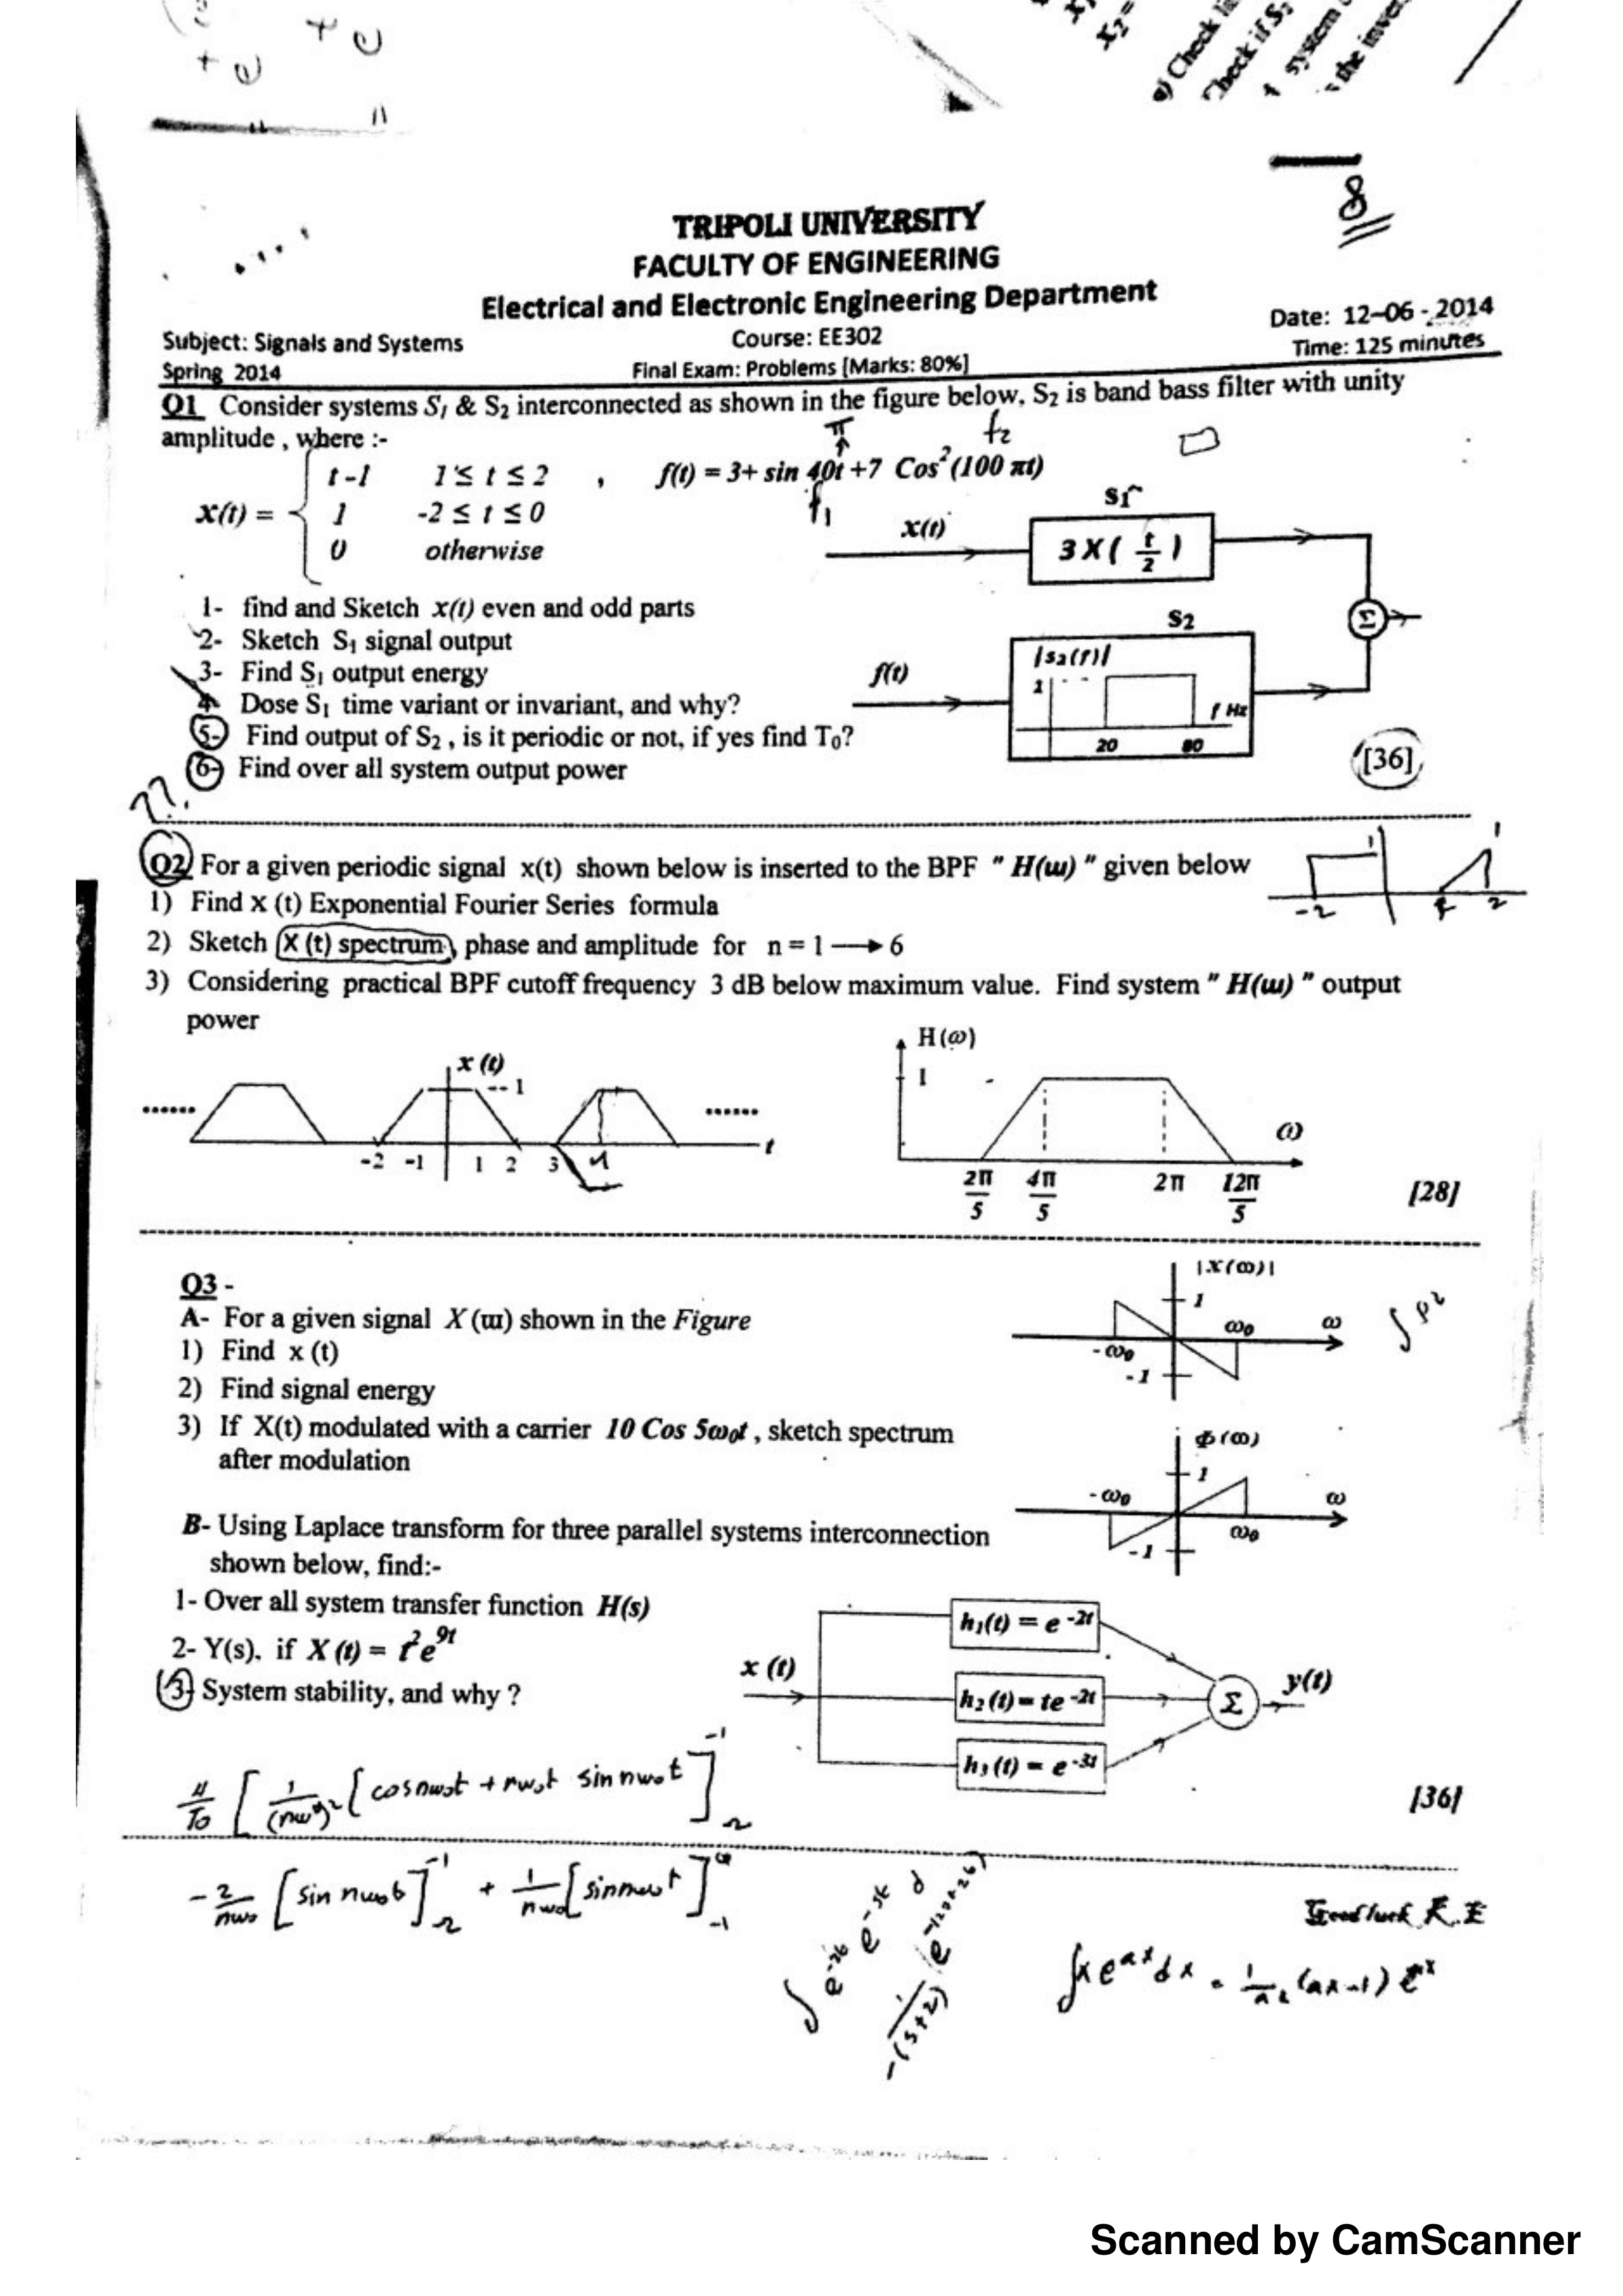 x₂=
) Check
Check if S₂
system
the inver
8
TRIPOLI UNIVERSITY
FACULTY OF ENGINEERING
Electrical and Electronic Engineering Department
Subject: Signals and Systems Course: EE302 Date: 12-06-2014
Spring 2014 Final Exam: Problems [Marks: 80%] Time: 125 minutes
Q1 Consider systems S₁ & S₂ interconnected as shown in the figure below, S₂ is band bass filter with unity
amplitude , where :-
π f₂
x(t) = { t-1 1 ≤ t ≤ 2 , f(t) = 3+ sin 40t +7 Cos²(100 πt)
1 -2 ≤ t ≤ 0
0 otherwise
f₁
x(t) S1 3X( t/2 )
Σ
f(t) S2 |s₂(f)| 1 f Hz 20 80
1- find and Sketch x(t) even and odd parts
2- Sketch S₁ signal output
3- Find S₁ output energy
4- Dose S₁ time variant or invariant, and why?
5- Find output of S₂ , is it periodic or not, if yes find T₀?
6- Find over all system output power
[36]
??
Q2 For a given periodic signal x(t) shown below is inserted to the BPF " H(ω) " given below
1) Find x (t) Exponential Fourier Series formula
2) Sketch X (t) spectrum, phase and amplitude for n = 1 → 6
3) Considering practical BPF cutoff frequency 3 dB below maximum value. Find system " H(ω) " output
power
1 1
-2 2
x (t) -- 1
...... ......
-2 -1 1 2 3 4 t
H(ω)
1
ω
2π/5 4π/5 2π 12π/5
[28]
Q3 -
A- For a given signal X (ω) shown in the Figure
1) Find x (t)
2) Find signal energy
3) If X(t) modulated with a carrier 10 Cos 5ω₀t , sketch spectrum
after modulation
|X(ω)|
1
ω₀ ω
-ω₀
-1
Φ(ω)
1
-ω₀ ω
ω₀
-1
B- Using Laplace transform for three parallel systems interconnection
shown below, find:-
1- Over all system transfer function H(s)
2- Y(s), if X (t) = t²e^9t
3- System stability, and why ?
x (t)
h₁(t) = e^-2t
h₂(t) = te^-2t
h₃(t) = e^-3t
Σ y(t)
[36]
4/T₀ [ 1/(nω₀)² [ cos nω₀t + nω₀t sin nω₀t ]
-2/nω₀ [sin nω₀t] + 1/nω₀ [sin nω₀t]
Good luck
∫x e^ax dx = 1/a² (ax-1) e^ax
Scanned by CamScanner